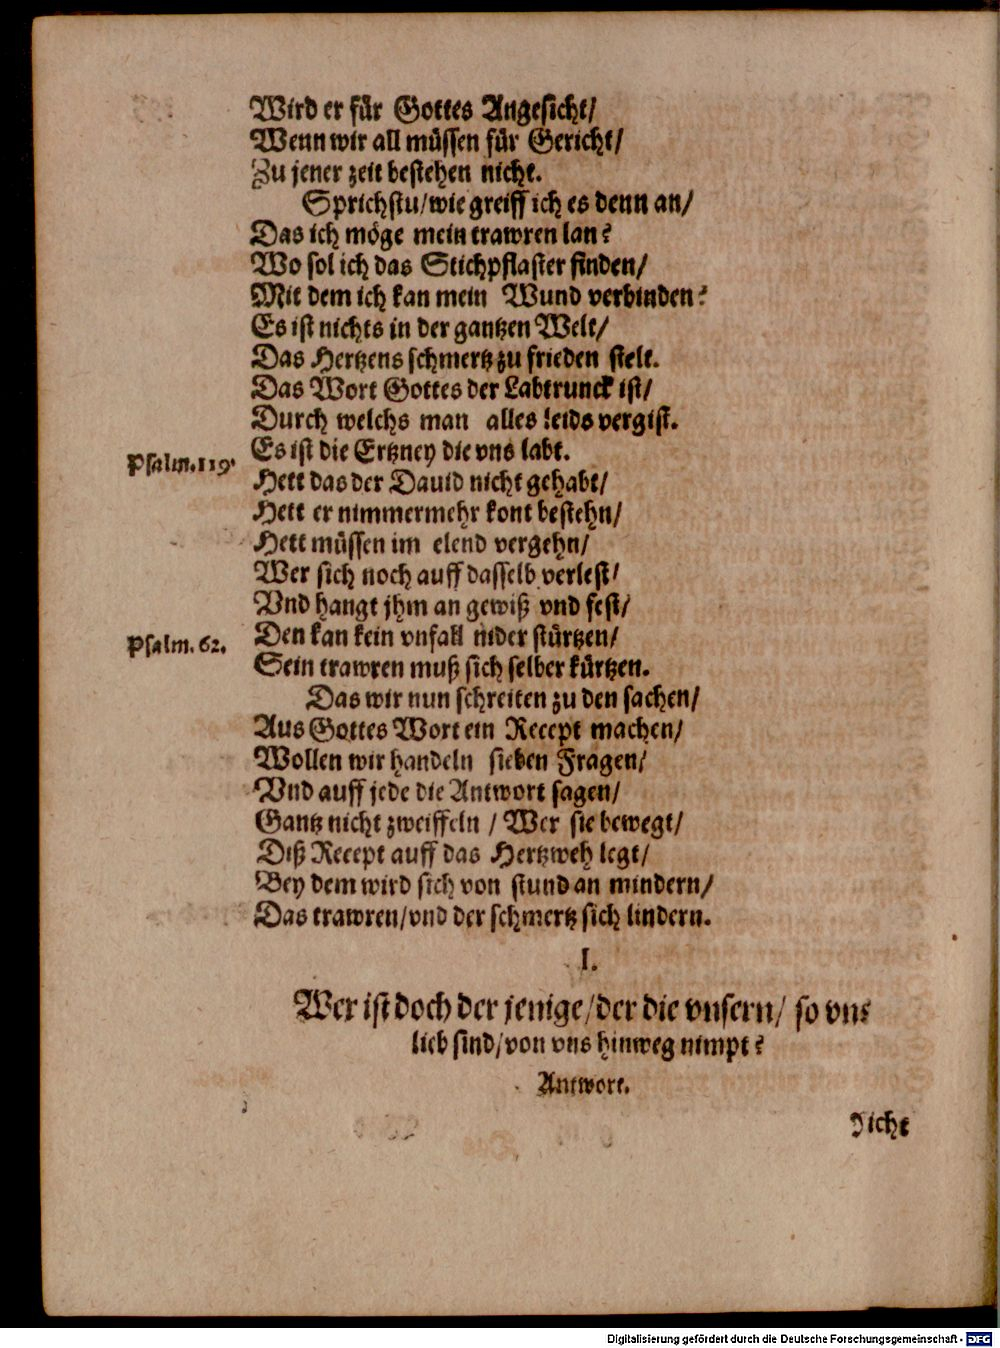 Wird er für Gottes Angesicht/
Wenn wir all müssen für Gericht/
Zu jener zeit bestehen nicht.
Sprichstu/wie greiff ich es denn an/
Das ich möge mein trawren lan?
Wo sol ich das Stichpflaster finden/
Mit dem ich kan mein Wund verbinden?
Es ist nichts in der gantzen Welt/
Das Hertzens schmertz zu frieden stelt.
Das Wort Gottes der Labtrunck ist/
Durch welchs man alles leids vergist.
Es ist die Ertzney die vns labt.
Psalm.119.
Hett das der Dauid nicht gehabt/
Hett er nimmermehr kont bestehn/
Hett müssen im elend vergehn/
Wer sich noch auff dasselb verlest/
Vnd hangt jhm an gewiß vnd fest/
Den kan kein vnfall nider stürtzen/
Psalm.62.
Sein trawren muß sich selber kürtzen.
Das wir nun schreiten zu den sachen/
Aus Gottes Wort ein Recept machen/
Wollen wir handeln sieben Fragen/
Vnd auff jede die Antwort sagen/
Gantz nicht zweiffeln / Wer sie bewegt/
Diß Recept auff das Hertzweh legt/
Bey dem wird sich von stund an mindern/
Das trawren/vnd der schmertz sich lindern.
I.
Wer ist doch der jenige/der die vnsern/ so vns
lieb sind/von vns hinweg nimpt?
Antwort.
Nicht
Digitalisierung gefördert durch die Deutsche Forschungsgemeinschaft - DFG